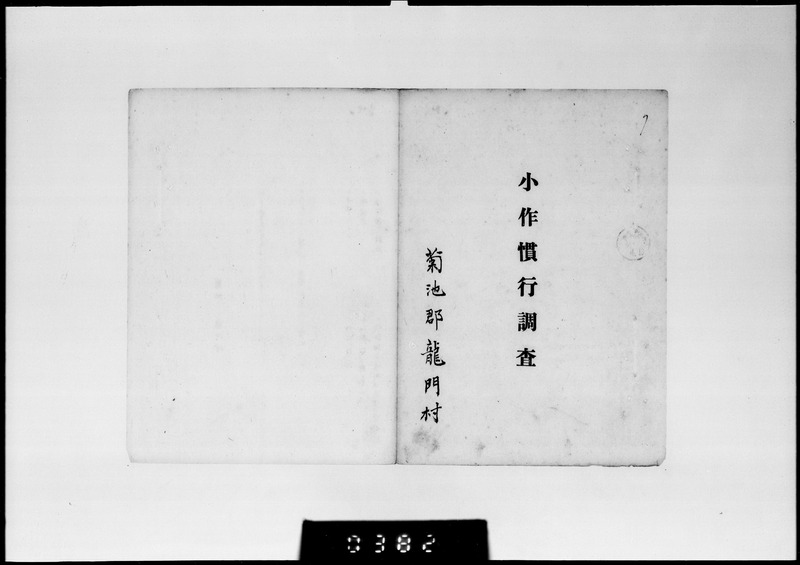 小作慣行調査
菊池郡龍門村
0382